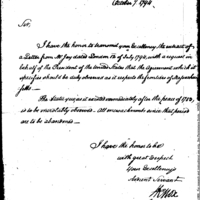 October 7. 1794
Sir,
I have the honor to transmit your Excellency the extract of
a Letter from Mr Jay dated London 16 of July 1794, with a request in
behalf of the President of the United States that the Agreement which it
specifies shall be duly observed as it respects the frontiers of
The status quo, as it existed immediately after the peace of 1783,
is to be inviolably observed. All encroachments since that period
are to be abandoned.
I have the honor to be
with great respect
Your Excellency's
Servant